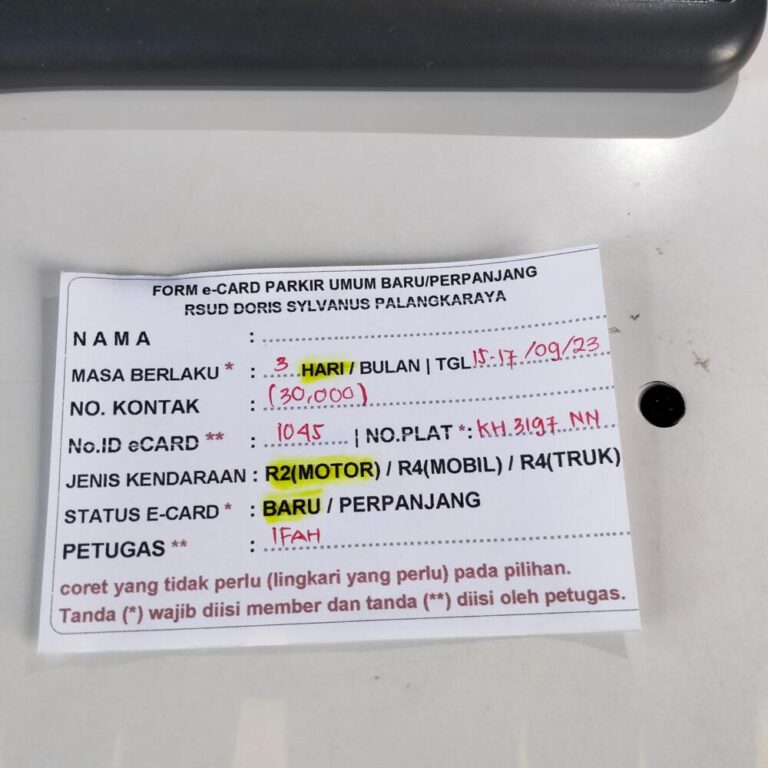 FORM e-CARD PARKIR UMUM BARU/PERPANJANG
RSUD DORIS SYLVANUS PALANGKARAYA
NAMA :
MASA BERLAKU * : 3 HARI / BULAN | TGL 15-17/09/23
NO. KONTAK : (30,000)
No.ID eCARD ** : 1045 | NO.PLAT *: KH 3197 NN
JENIS KENDARAAN : R2(MOTOR) / R4(MOBIL) / R4(TRUK)
STATUS E-CARD * : BARU / PERPANJANG
PETUGAS ** : IFAH
coret yang tidak perlu (lingkari yang perlu) pada pilihan.
Tanda (*) wajib diisi member dan tanda (**) diisi oleh petugas.